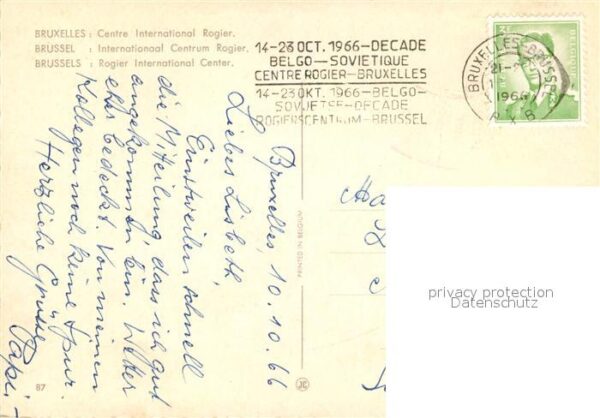 BRUXELLES : Centre International Rogier.
BRUSSEL : Internationaal Centrum Rogier.
BRUSSELS : Rogier International Center.
14-23 OCT. 1966-DECADE
BELGO-SOVIETIQUE
CENTRE ROGIER-BRUXELLES
14-23 OKT. 1966-BELGO-
SOVJETSE-DECADE
ROGIERSCENTRUM-BRUSSEL
BRUXELLES-BRUSSEL
1966
Bruxelles, 10.10.66
Liebes Lisbeth,
Einstweilen schnell
die Mitteilung, dass ich gut
angekommen bin. Wetter
eher bedeckt. Von meinen
Kollegen noch keine Spur.
Herzliche Grüsse
Papi.-
PRINTED IN BELGIUM
87
privacy protection
Datenschutz